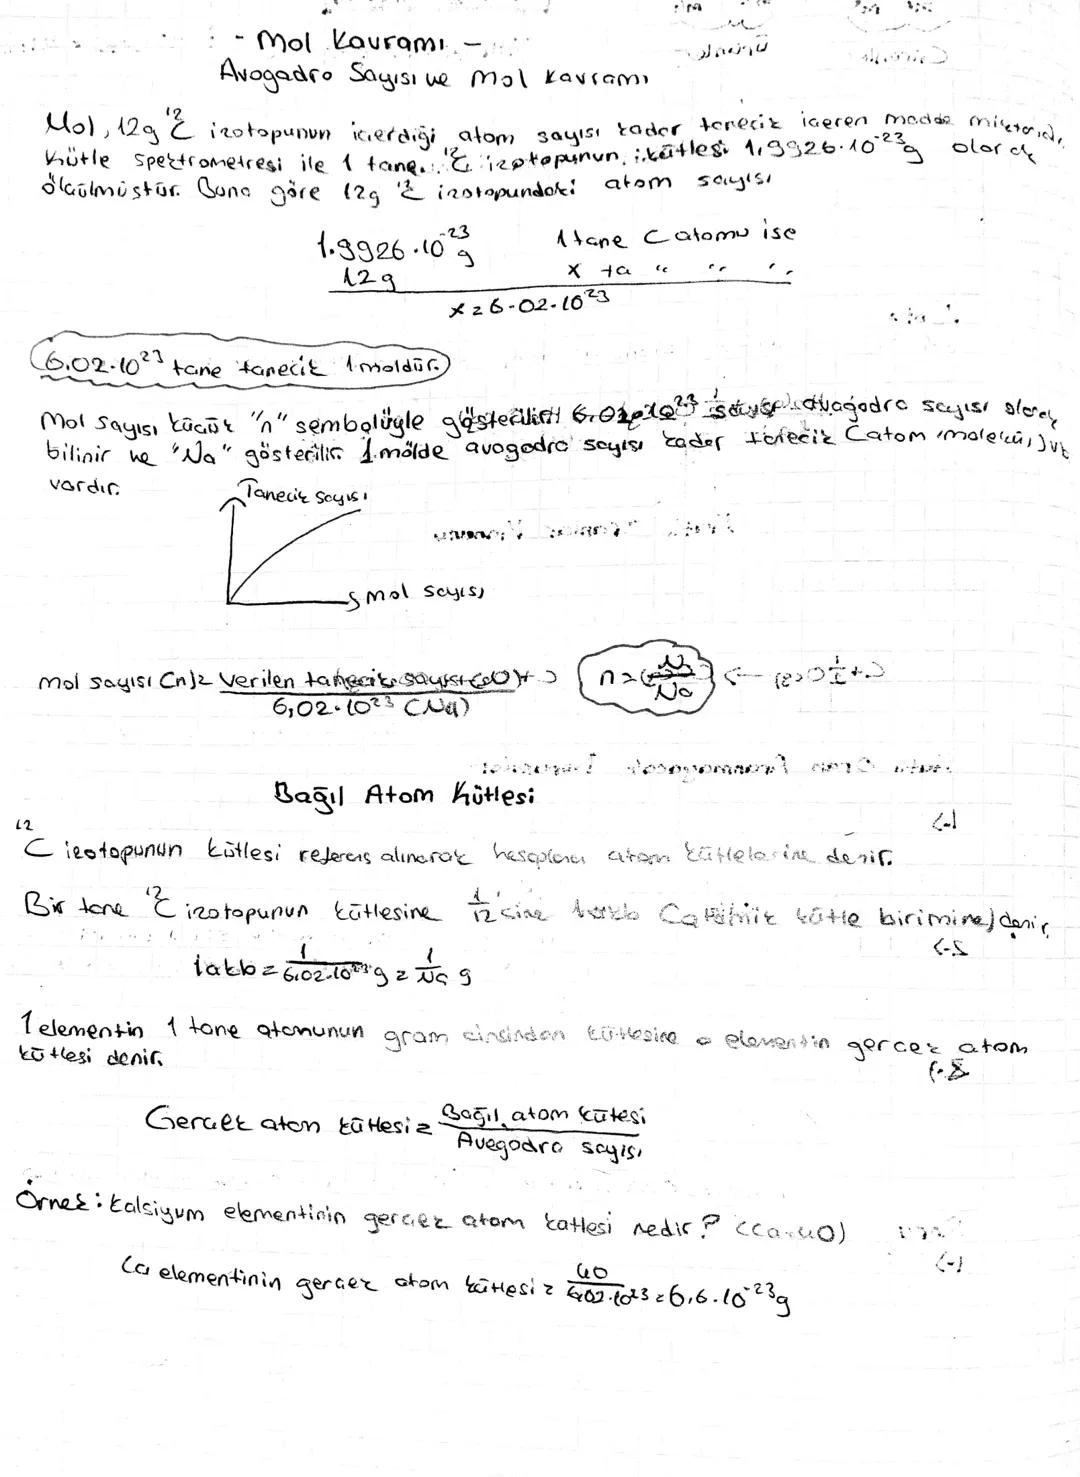 - Mol Kavramı -
Avogadro Sayısı ve Mol Kavramı
Mol, 12g ¹²C izotopunun içerdiği atom sayısı kadar tanecik içeren madde miktarıdır.
Kütle spektrometresi ile 1 tane ¹²C izotopunun kütlesi 1,9926.10⁻²³g olarak
ölçülmüştür. Buna göre 12g ¹²C izotopundaki atom sayısı
1.9926.10⁻²³ g 1 tane C atomu ise
12g x ta " " "
x = 6.02.10²³
6.02.10²³ tane tanecik 1 moldür.
Mol sayısı küçük "n" sembolüyle gösterilir. 6,02.10²³ sayısı avagadro sayısı olarak
bilinir ve "Na" gösterilir. 1 molde avogadro sayısı kadar tanecik (atom, molekül) vb
vardır.
Tanecik sayısı
mol sayısı
mol sayısı (n) = Verilen tanecik sayısı (N)
6,02.10²³ (Na)
n = N/Na
Bağıl Atom Kütlesi
¹²C izotopunun kütlesi referans alınarak hesaplanan atom kütlelerine denir.
Bir tane ¹²C izotopunun kütlesine 1/12'sine 1 akb (atomik kütle birimine) denir.
1akb = 1/6,02.10²³ g = 1/Na g
1 elementin 1 tane atomunun gram cinsinden kütlesine o elementin gerçek atom
kütlesi denir.
Gerçek atom kütlesi = Bağıl atom kütesi
Avegodro sayısı
Örnek: Kalsiyum elementinin gerçek atom katlesi nedir? (Ca:40)
Ca elementinin gerçek atom kütlesi = 40/6,02.10²³ = 6,6.10⁻²³g